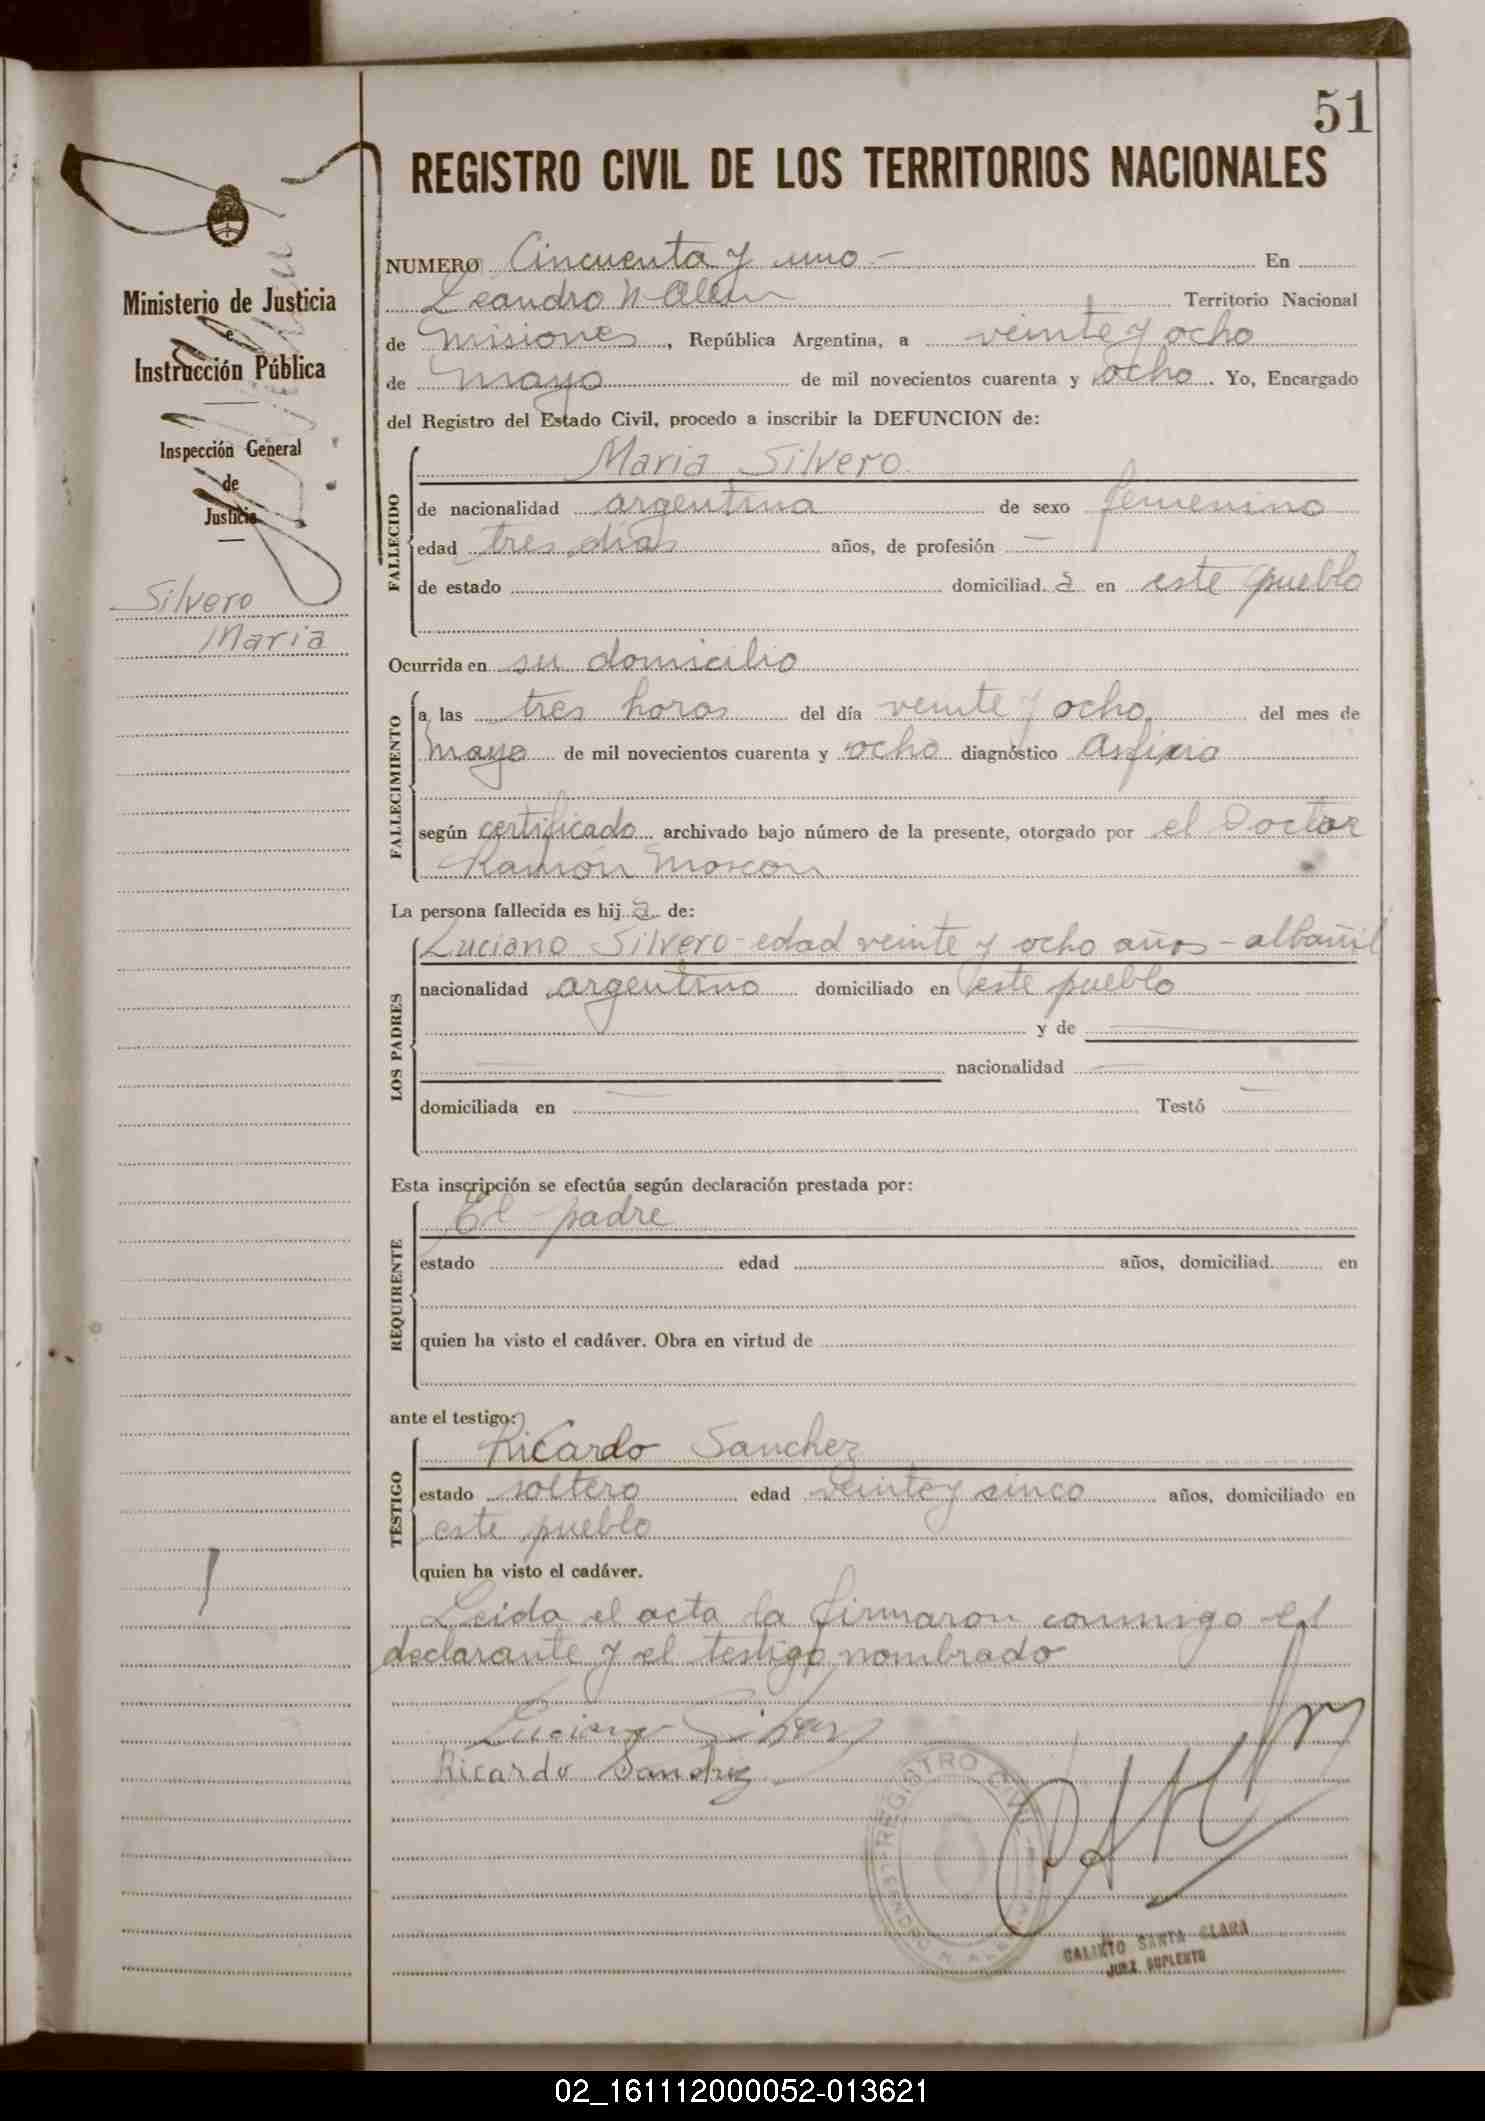 51
REGISTRO CIVIL DE LOS TERRITORIOS NACIONALES
Ministerio de Justicia
e
Instrucción Pública
Inspección General
de
Justicia
Silvero
Maria
NUMERO Cincuenta y uno - En
Leandro N Alem Territorio Nacional
de Misiones, República Argentina, a veinte y ocho
de Mayo de mil novecientos cuarenta y ocho. Yo, Encargado
del Registro del Estado Civil, procedo a inscribir la DEFUNCION de:
FALLECIDO
Maria Silvero.
de nacionalidad argentina de sexo femenino
edad tres dias años, de profesión —
de estado domiciliad a en este pueblo
Ocurrida en su domicilio
FALLECIMIENTO
a las tres horas del día veinte y ocho del mes de
mayo de mil novecientos cuarenta y ocho diagnóstico Asfixia
según certificado archivado bajo número de la presente, otorgado por el Doctor
Ramón Moscon
La persona fallecida es hij a de:
LOS PADRES
Luciano Silvero - edad veinte y ocho años - albañil
nacionalidad argentino domiciliado en este pueblo
y de —
— nacionalidad —
domiciliada en — Testó —
Esta inscripción se efectúa según declaración prestada por:
REQUIRENTE
El padre
estado edad años, domiciliad en
quien ha visto el cadáver. Obra en virtud de
ante el testigo:
TESTIGO
Ricardo Sanchez
estado soltero edad veinte y sinco años, domiciliado en
este pueblo
quien ha visto el cadáver.
Leida el acta la firmaron conmigo el
declarante y el testigo nombrado
Luciano Silvero
Ricardo Sanchez
REGISTRO CIVIL
LEANDRO N. ALEM
CALIXTO SANTA CLARA
JUEZ SUPLENTE
02_161112000052-013621